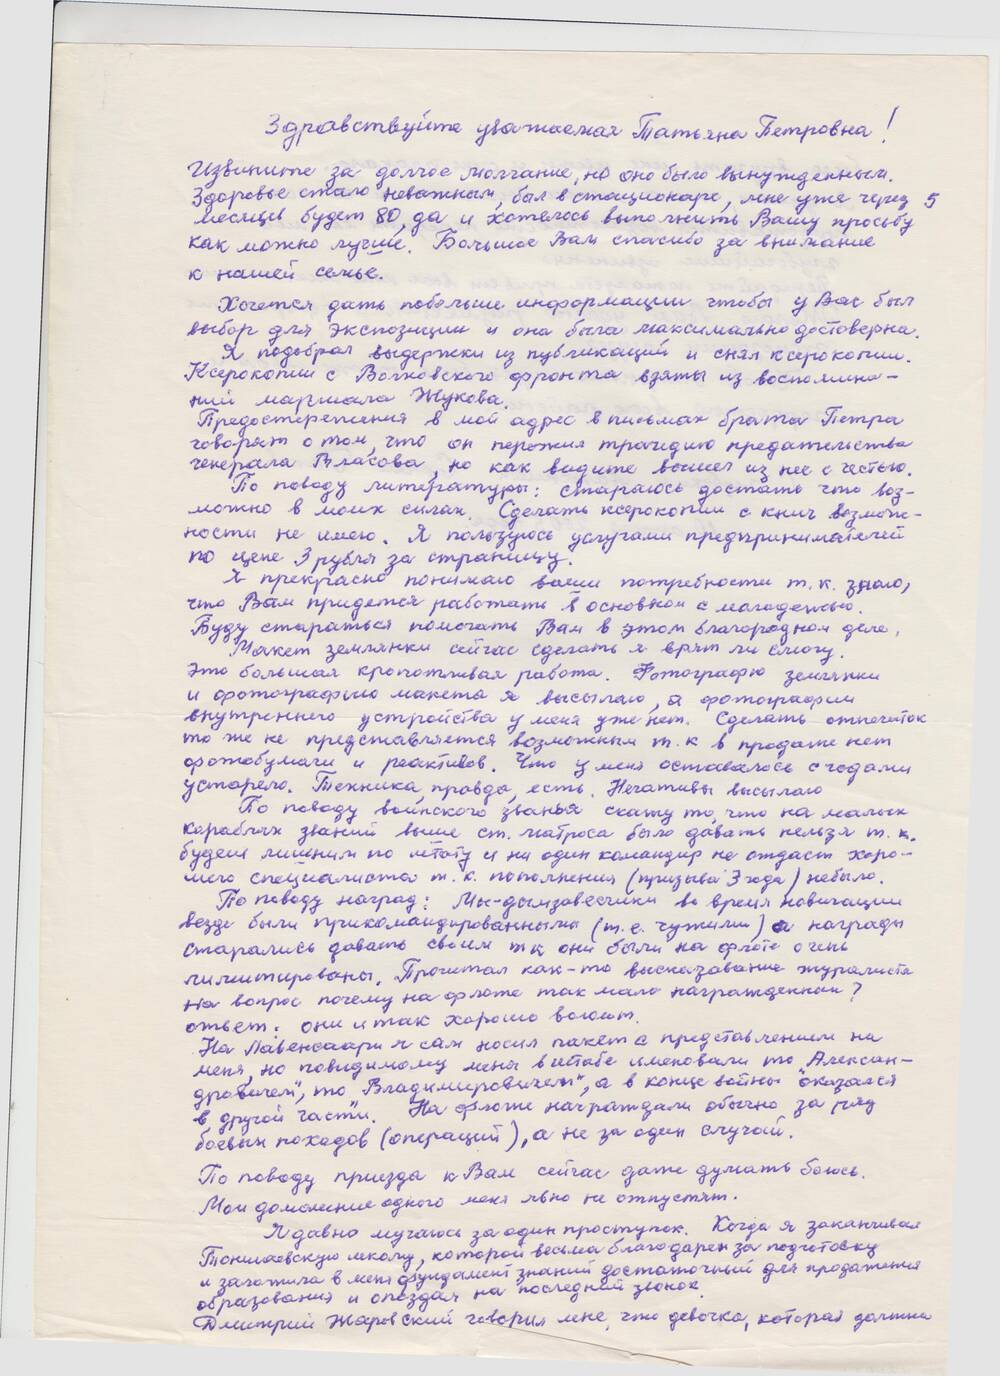 Здравствуйте уважаемая Татьяна Петровна!
Извините за долгое молчание, но оно было вынужденным.
Здоровье стало неважным, был в стационаре, мне уже через 5
месяцев будет 80, да и хотелось выполнить Вашу просьбу
как можно лучше. Большое Вам спасибо за внимание
к нашей семье.
Хочется дать побольше информации чтобы у Вас был
выбор для экспозиции и она была максимально достоверна.
Я подобрал выдержки из публикаций и снял ксерокопии.
Ксерокопии с Волховского фронта взяты из воспомина-
ний маршала Жукова.
Предостережения в мой адрес в письмах брата Петра
говорят о том, что он пережил трагедию предательства
генерала Власова, но как видите вышел из нее с честью.
По поводу литературы: стараюсь достать что воз-
можно в моих силах. Сделать ксерокопии с книг возмож-
ности не имею. Я пользуюсь услугами предпринимателей
по цене 3 рубля за страницу.
Я прекрасно понимаю ваши потребности т.к. знаю,
что Вам придется работать в основном с молодежью.
Буду стараться помогать Вам в этом благородном деле.
Макет землянки сейчас сделать я врят ли смогу.
Это большая кропотливая работа. Фотографию землянки
и фотографию макета я высылаю, а фотографии
внутреннего устройства у меня уже нет. Сделать отпечаток
то же не представляется возможным т.к в продаже нет
фотобумаги и реактивов. Что у меня оставалось с годами
устарело. Техника, правда, есть. Негативы высылаю
По поводу воинского званья скажу то, что на малых
кораблях званий выше ст. матроса было давать нельзя т.к.
будеш лишним по штату и ни один командир не отдаст хоро-
шего специалиста т.к. пополнения (призыва 3 года) небыло.
По поводу наград: Мы-дымзавесчики во время навигации
везде были прикомандированными (т.е. чужими) а награды
старались давать своим тк они были на флоте очень
лимитированы. Прочитал как-то высказование журалиста
на вопрос почему на флоте так мало награжденных?
ответ: они и так хорошо воюют.
На Лавенсаари я сам носил пакет с представлением на
меня, но повидимому меня в штабе именовали то „Алексан-
дровичем", то „Владимировичем", а в конце войны оказался
в другой части. На флоте награждали обычно за ряд
боевых походов (операций), а не за один случай.
По поводу приезда к Вам сейчас даже думать боюсь.
Мои домашние одного меня явно не отпустят.
Я давно мучаюсь за один проступок. Когда я заканчивал
Тоншаевскую школу, которой весьма благодарен за подготовку
и заложила в меня фундамент знаний достаточный для продожения
образования и опоздал на последний звонок.
Дмитрий Жаровский говорил мне, что девочка, которая должна